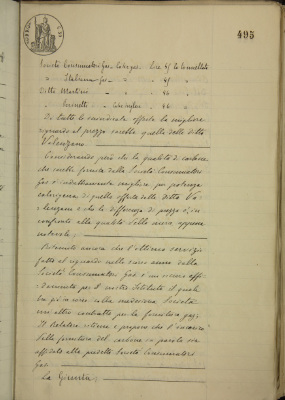 495
Società Consumatori Gas Cokegas. Lire 45 la tonnellata
" Italiana Gas " " 45 "
Ditta Martini " " 46 "
" " " 46 "
Di tutte le considerate offerte la migliore
riguardo al prezzo sarebbe quella della ditta
Valenzano.
Considerando però che la qualità di carbone
che vuolle fornita dalla Società Consumatori
Gas è indubbiamente migliore per potenza
calorigena di quello offerto dalla Ditta Va-
lenzano e che la differenza di prezzo è, in
confronto alla qualità della merce appena
notevole;
Ritenuto ancora che l'ottimo servizio
fatto al riguardo nello scorso anno dalla
Società Consumatori Gas è un sicuro affi-
damento per il nostro Istituto il quale
ha già in corso colla medesima Società
un altro contratto per la fornitura gaz;
Il Relatore ritiene e propone che l'incarico
della fornitura del carbone in parola sia
affidato alla predetta Società Consumatori
Gas.
La Giunta;